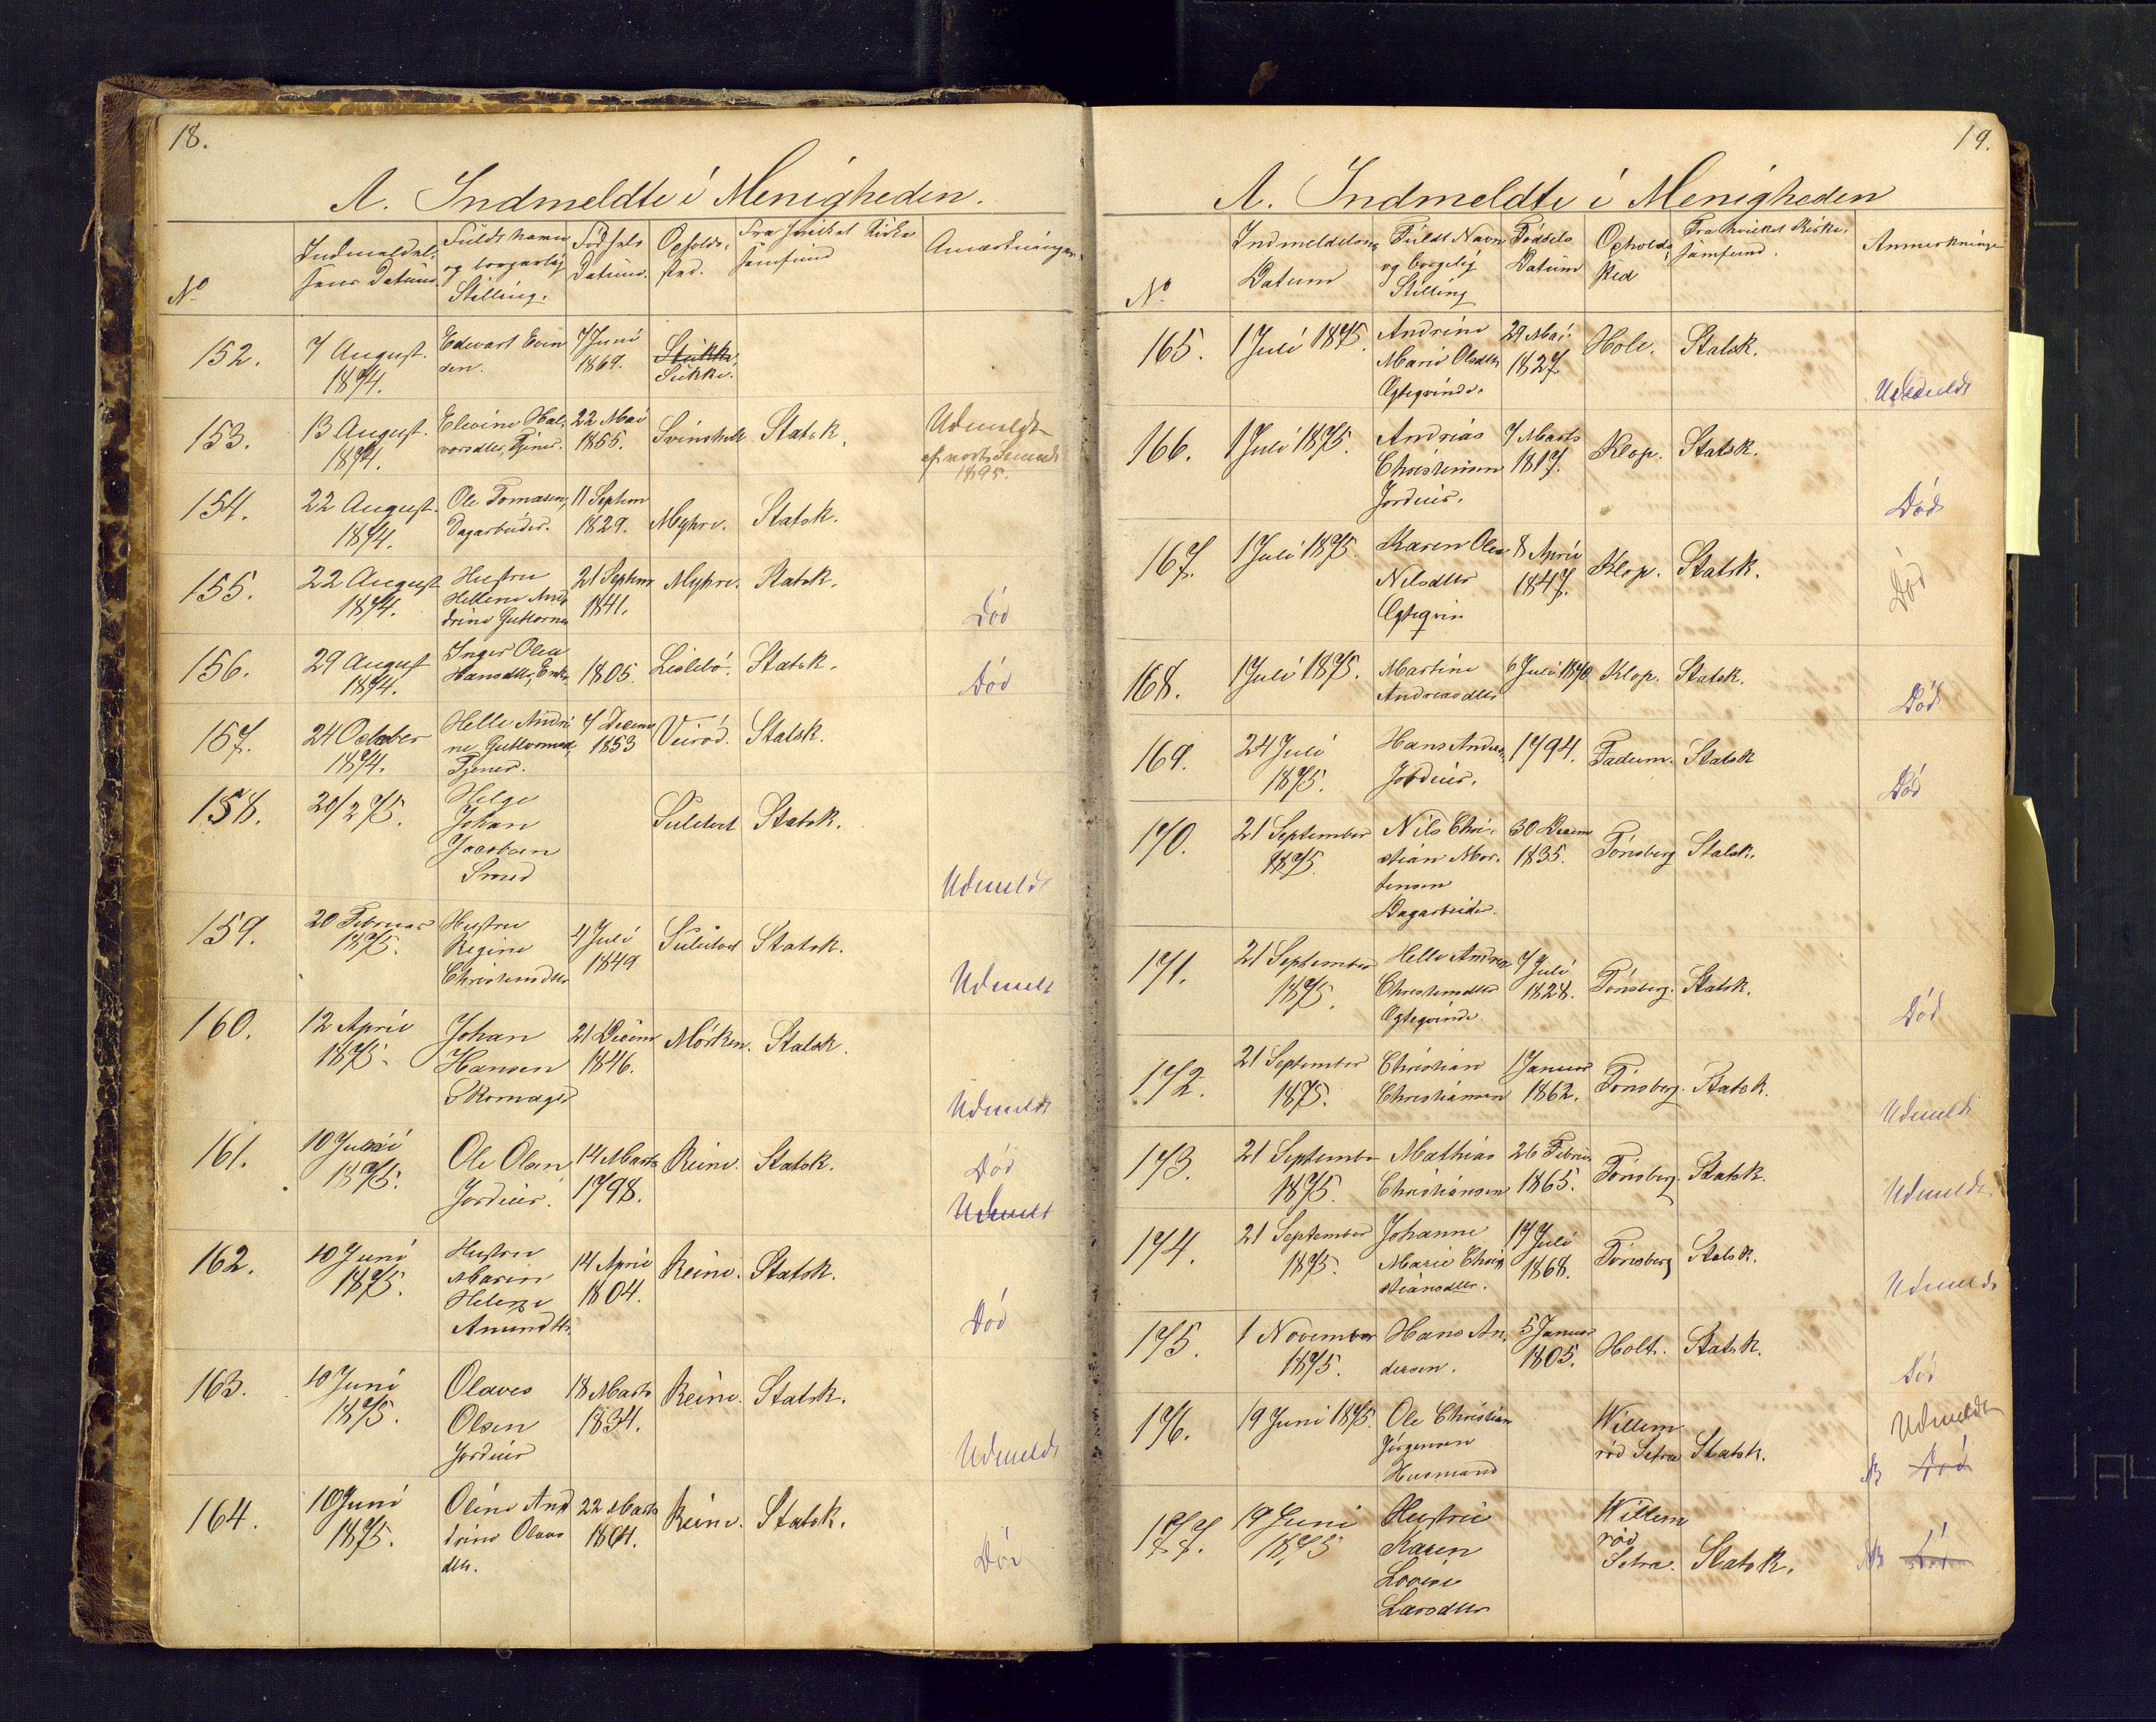 18.
A. Indmeldte i Menigheden.
No
Indmeldel,
sens Datum.
Fulde Navn
og borgerlig
Stilling.
Fødsels
Datum.
Opholds,
sted.
Fra hvilket Kirke
samfund
Anmærkninger.
152.
7 August.
1874.
Edvart Even
den.
7 Juni
1869.
Sukke.
153.
13 August.
1874.
Elevine Hal,
vorsdtr, Tjener.
22 Mai
1855.
Svinsholt
Statsk.
Udmeldt
1895.
154.
22 August.
1874.
Ole Tomasen,
Dagarbeider.
11 Septem
1829.
Myhre.
Statsk.
155.
22 August
1874.
Hustru
Hellene And
drine Guttorms
21 Septem
1841.
Myhre.
Statsk.
Død
156.
29 August
1874.
Inger Olea
Hansdtr, Enke,
1805.
Lislebö.
Statsk.
Död
157.
24 October
1874.
Helle Andri
ne Guttormsd,
Tjener.
7 Decem
1853
Veiröd.
Statsk.
158.
20/2 75.
Helge
Johan
Jacobsen
Smed
Statsk.
Udmeldt
159.
20 Februar
1875.
Hustru
Regine
Christensdtr
4 Juli
1849
Statsk.
Udmelt
160.
12 April
1875.
Johan
Hansen
Skomager
21 Decem
1846.
Mörken.
Statsk.
Udmeldt
161.
10 Juni
1875.
Ole Olsen
Jordeier.
14 Marts
1798.
Reine.
Statsk.
Död
Udmelt
162.
10 Juni
1875.
Hustru
Maren
Helene
Amundtr.
14 April
1804.
Reine.
Statsk.
Död
163.
10 Juni
1875.
Olaves
Olsen
Jordeier
18 Marts
1834.
Reine.
Statsk.
Udmeldt
164.
10 Juni
1875.
Oline And
drine Olaves
dtr.
22 Marts
1864.
Reine.
Statsk.
Död
19.
A. Indmeldte i Menigheden
No
Indmeldelsens
Datum
Fuldt Navn
og borgelig
Stilling
Fødsels
Datum
Opholds,
sted
Fra hvilket Kirke,
samfund.
Anmerkninger
165.
1 Juli 1875.
Andrine
Marie Olsdtr,
Egteqvinde.
29 Mai
1827.
Hole.
Statsk.
Udmeldt
166.
1 Juli 1875.
Andreas
Christensen
Jordeier.
7 Marts
1817.
Klop.
Statsk.
Död
167.
1 Juli 1875.
Karen Olea
Nilsdtr
Egteqvin
8 April
1847.
Klop.
Statsk.
Död
168.
1 Juli 1875.
Martine
Andreasdtr
6 Juli 1870
Klop.
Statsk.
Död
169.
24 Juli
1875.
Hans Anders,
Jordeier.
1794.
Fadum.
Statsk
Död
170.
21 September
1875.
Nils Chri,
stian Mor,
tensen
Dagarbeider.
30 Decem
1835.
Tönsberg
Statsk.
171.
21 September
1875.
Helle Andrea
Christensdtr
Egteqvinde.
7 Juli
1828.
Tönsberg.
Statsk.
Död
172.
21 September
1875.
Christian
Christiansen
1 Januar
1862.
Tönsberg.
Statsk.
Udmeldt
173.
21 September
1875.
Mathias
Christiansen
26 Februar
1865.
Tönsberg.
Statsk.
Udmeldt
174.
21 September
1875.
Johanne
Marie Chri
stiansdtr.
17 Juli
1868.
Tönsberg
Statsk.
Udmeldt
175.
1 November
1875.
Hans An,
dersen.
5 Januar
1805.
Holt.
Statsk.
Död
176.
19 Juni 1875.
Ole Christian
Jörgensen
Husmand
Willem
röd Setra
Statsk.
Udmeldt
NB Död
177.
19 Juni
1875
Hustru
Karen
Lovise
Larsdtr
Willem
röd
Setra.
Statsk.
NB Död